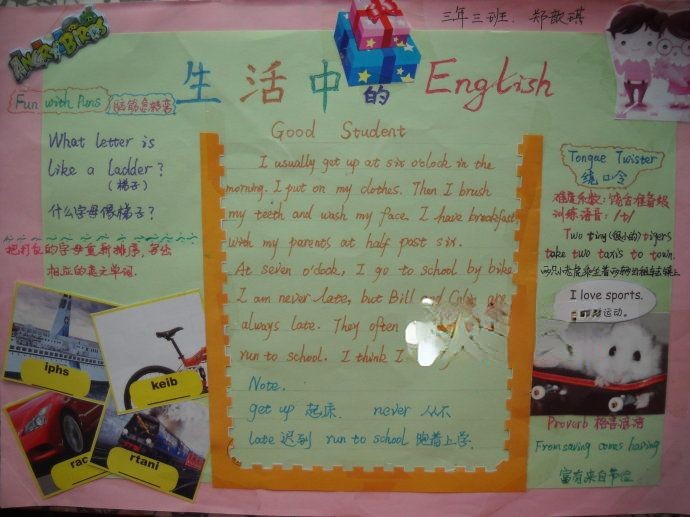 三年三班. 郑歆琪
ANGRY BIRDS
生活中的 English
Fun with Puns 脑筋急转弯
What letter is
Like a ladder?
(梯子)
什么字母像梯子?
把打乱的字母重新排序,写出
相应的英文单词.
iphs
keib
rac
rtani
Good Student
I usually get up at six o'clock in the
morning. I put on my clothes. Then I brush
my teeth and wash my face. I have breakfast
with my parents at half past six.
At seven o'clock, I go to school by bike.
I am never late, but Bill and are
always late. They often
run to school. I think I
Note.
get up 起床. never 从不
late 迟到 run to school 跑着上学.
Tongue Twister
绕口令
难度系数:绕舌准备级
训练语音: /t/
Two tiny (很小的) tigers
take two taxis to town.
两只小老虎乘坐着两辆出租车去镇上
I love sports.
运动。
Proverb 格言谚语
From saving comes having
富有来自节俭